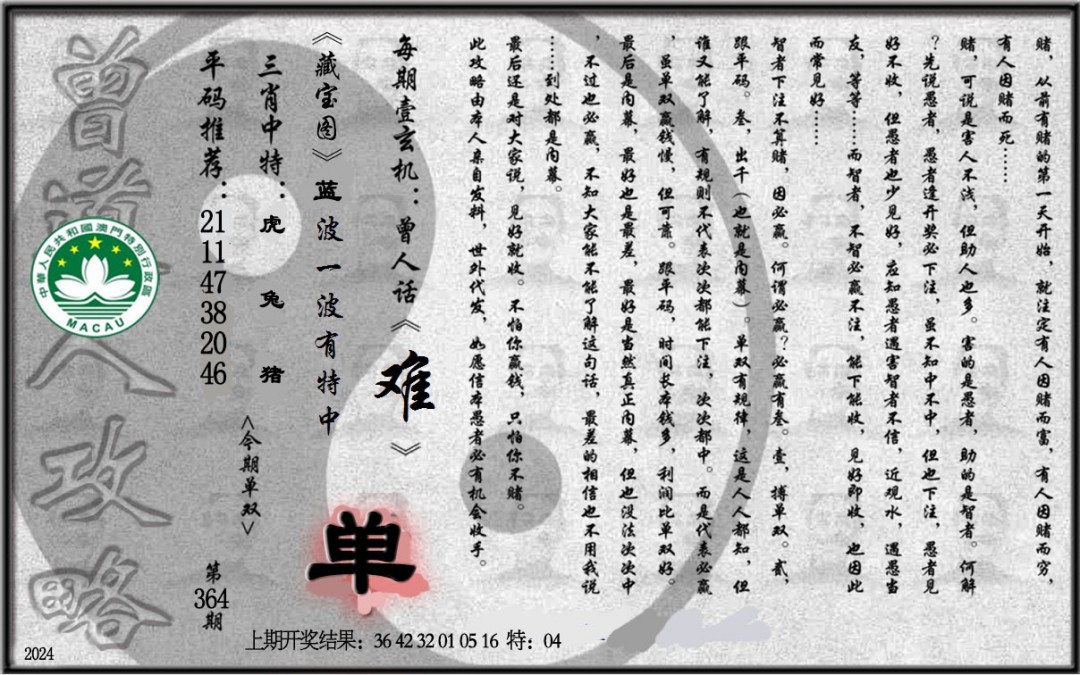 赌，从前有赌的第一天开始，就注定有人因赌而富，有人因赌而穷，
有人因赌而死……
赌，可说是害人不浅，但助人也多。害的是愚者，助的是智者。何解
？先说愚者，愚者逢开奖必下注，虽不知中不中，但也下注，愚者见
好不收，但愚者也少见好，应知愚者遇害智者不信，近观水，遇愚当
友，等等……而智者，不智必赢不注，能下能收，见好即收，也因此
而常见好……
智者下注不算赌，因必赢。何谓必赢？必赢有叁。壹，搏单双。贰，
跟平码。叁，出千（也就是内幕）。单双有规律，这是人人都知，但
谁又能了解，有规则不代表次次都能下注，次次都中。而是代表必赢
，虽单双赢钱慢，但可靠。跟平码，时间长本钱多，利润比单双好。
最后是内幕，最好也是最差，最好是当然真正内幕，但也没法次次中
，不过也必赢，不知大家能不能了解这句话，最差的相信也不用我说
……到处都是内幕。
最后还是对大家说，见好就收。不怕你赢钱，只怕你不赌。
此攻略由本人亲自发料，世外代发，如愿信本愚者必有机会收手。
每期壹玄机：曾人话《难》
《藏宝图》蓝波一波有特中
单
三肖中特：虎 兔 猪
<今期单双>
平码推荐：21 11 47 38 20 46
第364期
曾道人攻略
中華人民共和國澳門特別行政區
MACAU
上期开奖结果：36 42 32 01 05 16 特：04
2024